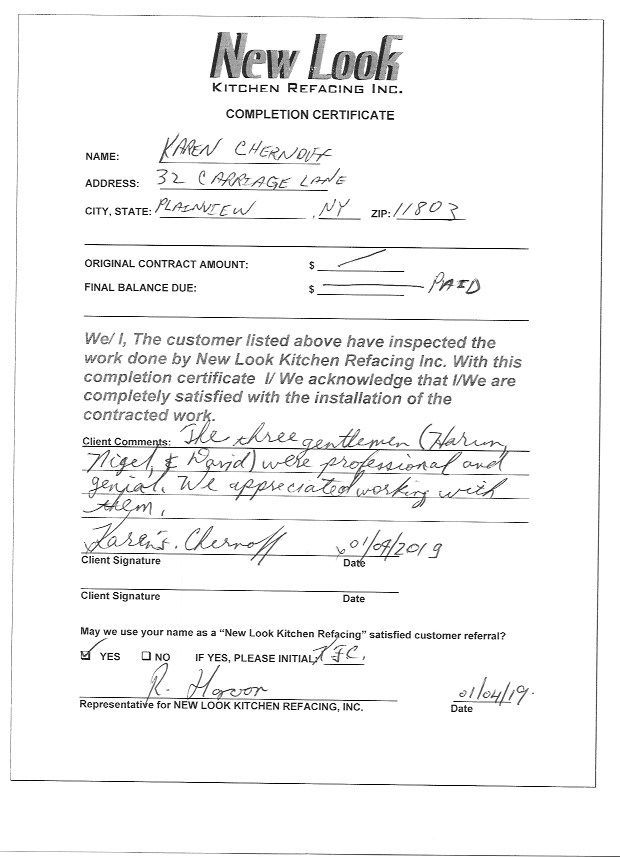 New Look
KITCHEN REFACING INC.
COMPLETION CERTIFICATE
NAME: KAREN CHERNOFF
ADDRESS: 32 CARRIAGE LANE
CITY, STATE: PLAINVIEW , NY ZIP: 11803
ORIGINAL CONTRACT AMOUNT: $
FINAL BALANCE DUE: $ PAID
We/ I, The customer listed above have inspected the
work done by New Look Kitchen Refacing Inc. With this
completion certificate I/ We acknowledge that I/We are
completely satisfied with the installation of the
contracted work.
Client Comments: The three gentlemen (Harun,
Nigel, & David) were professional and
genial. We appreciated working with
them.
Karen S. Chernoff 01/04/2019
Client Signature Date
Client Signature Date
May we use your name as a "New Look Kitchen Refacing" satisfied customer referral?
YES NO IF YES, PLEASE INITIAL
R. 01/04/19.
Representative for NEW LOOK KITCHEN REFACING, INC. Date